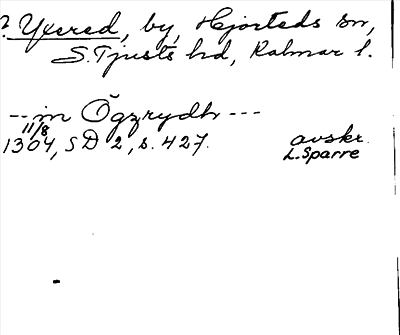 ? Yxered, by, Hjorteds sn,
S. Tjusts hd, Kalmar l.
-- in Ögzrydh ---
11/8
1304, SD 2, s. 427. avskr.
L. Sparre